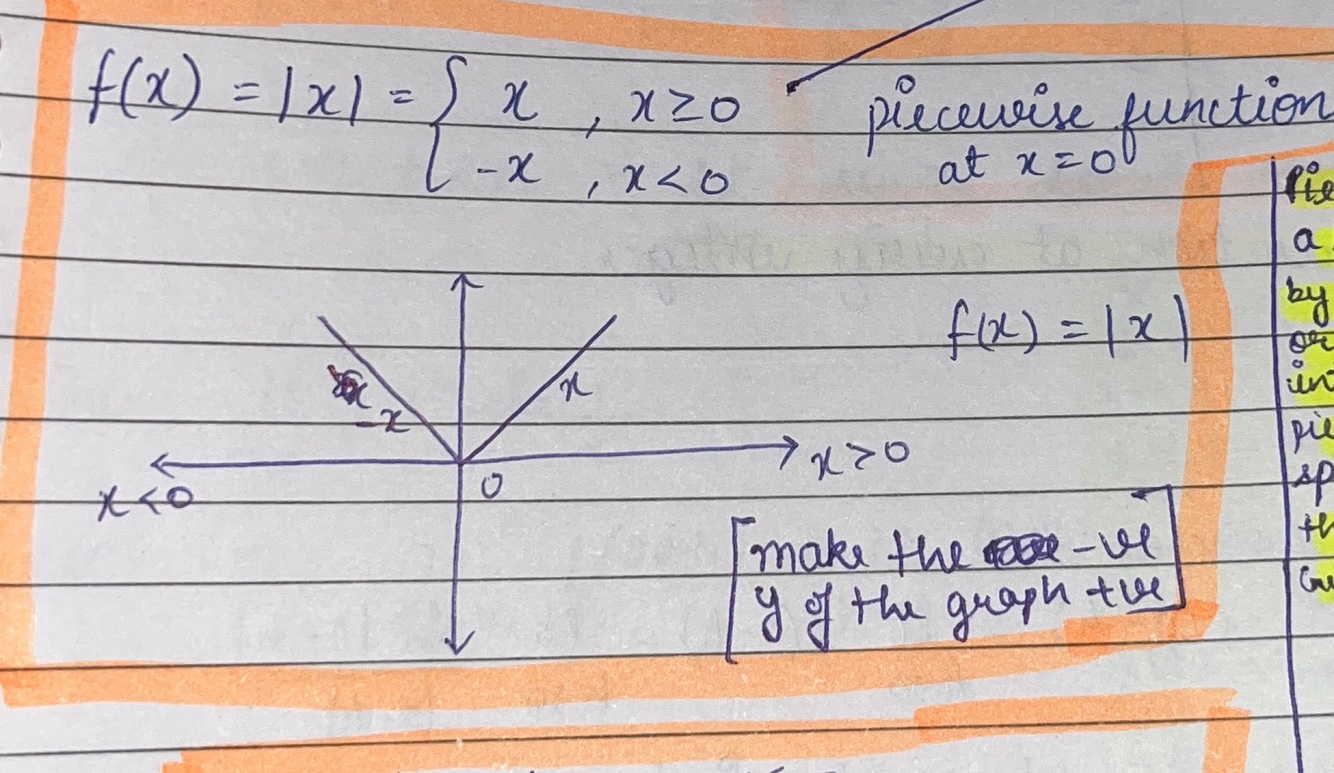 f(x) = |x| = { x , x ≥ 0
-x , x < 0
piecewise function
at x = 0
f(x) = |x|
-x
x
x < 0
0
x ≥ 0
[make the -ve
y of the graph +ve]
a
by
or